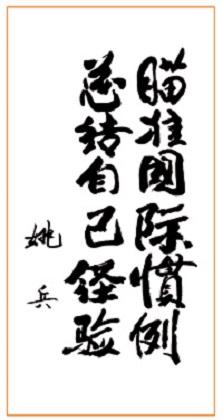 瞄准國际慣例
总结自己经验
姚兵